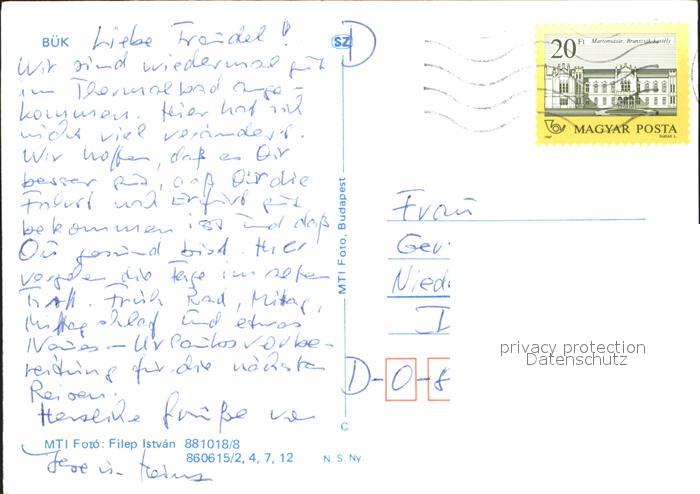 BÜK
Liebe Traudel!
Wir sind wiedermal gut
im Thermalbad ange-
kommen. Hier hat sich
nicht viel verändert.
Wir hoffen, daß es Dir
besser geht, daß Dir die
Fahrt nach Erfurt gut
bekommen ist und daß
Du gesund bist. Hier
vergehen die Tage im selben
Trott. Früh Bad, Mittag,
Mittagschlaf und etwas
Neues - Urlaubsvorbe-
reitung für die nächsten
Reisen.
Herzliche Grüße von
MTI Fotó: Filep István 881018/8
860615/2, 4, 7, 12 N. S. Ny.
Heinz
SZ
D
MTI Foto, Budapest
C
20 Ft
Martonvásár, Brunszvik-kastély
MAGYAR POSTA
Frau
Ger
Nied
D
D-O-8
privacy protection
Datenschutz